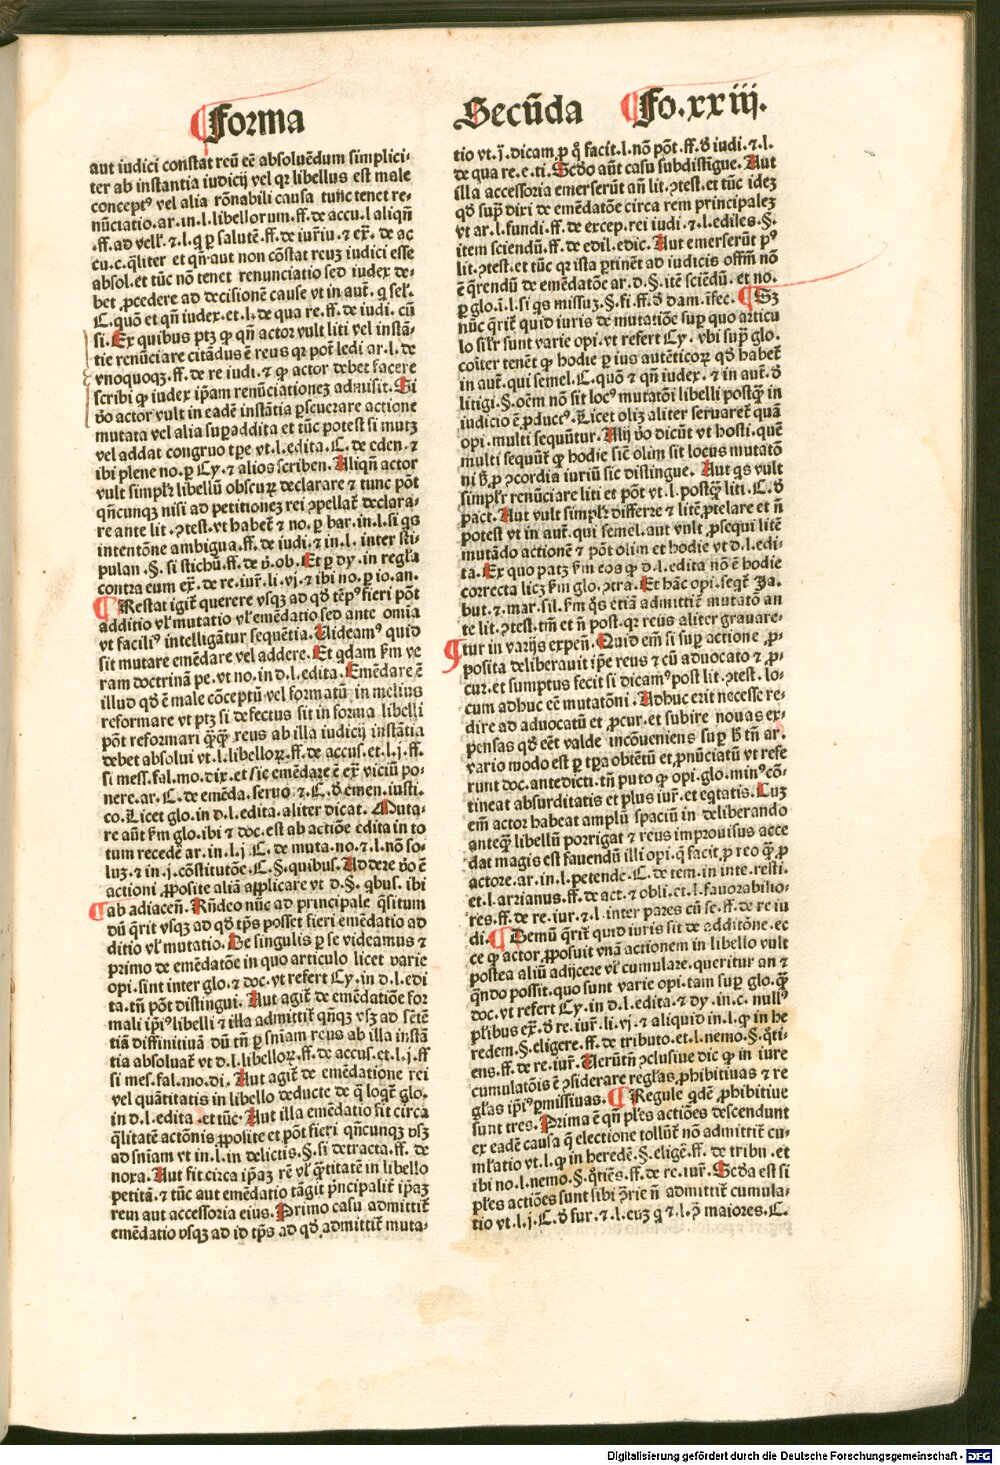 Forma
Secūda Fo.xxiij.
aut iudici constat reū eē absoluēdum simplici-
ter ab instantia iudicij vel qꝛ libellus est male
conceptꝰ vel alia rōnabili causa tunc tenet re-
nūciatio.ar.in.l.libellorum.ff.de accu.l aliqñ
.ff.ad vell'.⁊.l.q ꝑ salutē.ff.de iur̄iu.⁊ ex̄.de ac
cu.c.q̄liter et qñ.aut non cōstat reuꝫ iudici esse
absol.et tūc nō tenet renunciatio sed iudex de-
bet ꝓcedere ad decisionē cause vt in aut̄.q sel'.
C.quō et qñ iudex.et.l.de qua re.ff.de iudi. cū
si.Ex quibus ptꝫ ꝙ qñ actor vult liti vel instā-
tie renūciare citādus ē reus qꝛ pot̄ ledi ar.l.de
vnoquoqꝫ.ff.de re iudi.⁊ ꝙ actor debet facere
scribi ꝙ iudex ip̄am renūciationeꝫ admisit.Si
v̄o actor vult in eadē instātia ꝑseuerare actione
mutata vel alia suꝑaddita et tūc potest si mutꝫ
vel addat congruo tꝑe vt.l.edita.C.de eden.⁊
ibi plene no.ꝑ Cy.⁊ alios scriben.Aliqñ actor
vult simplr̄ libellū obscuꝝ declarare ⁊ tunc pōt
qñcunqꝫ nisi ad petitioneꝫ rei ↄpellat̄ declara-
re ante lit.ↄtest.vt habet̄ ⁊ no.ꝑ bar.in.l.si q̄s
intentōne ambigua.ff.de iudi.⁊ in.l. inter sti-
pulan.§.si stichū.ff.de v̄.ob.Et ꝑ dy.in regl'a
contra eum ex̄.de.re.iur̄.li.vj.⁊ ibi no.ꝑ io.an.
Restat igit̄ querere vsqꝫ ad qd̄ tēpꝰ fieri pōt
additio vl' mutatio vl' emēdatio sed ante omīa
vt faciliꝰ intelligātur sequētia.Uideamꝰ quid
sit mutare emēdare vel addere.Et qdam ẜm ve
ram doctrinā pe.vt no.in d.l.edita.Emēdare ē
illud qd̄ ē male cōceptū vel formatū in melius
reformare vt ptꝫ si defectus sit in forma libelli
pōt reformari q̄q̄ reus ab illa iudicij instātia
debet absolui vt.l.libelloꝝ.ff.de accus.et.l.j.ff.
si mess.fal.mo.dix.et sic emēdare ē ex̄ viciū po-
nere.ar.C.de emēda.seruo.⁊.C.d̄ emen.iusti.
co.Licet glo.in d.l.edita.aliter dicat.Muta-
re aūt ẜm glo.ibi ⁊ doc.est ab actiōe edita in to
tum recedē ar.in.l.j C.de muta.no.⁊.l.nō so-
luꝫ.⁊ in.j.cōstitutōe.C.§.quibus.Addere v̄o ē
actioni ꝓposite aliā applicare vt d.§. qbus. ibi
ab adiacen̄.Rn̄deo nūc ad principale q̄situm
dū q̄rit vsqꝫ ad qd̄ tp̄s posset fieri emēdatio ad
ditio vl' mutatio.De singulis ꝑ se videamus ⁊
primo de emēdatōe in quo articulo licet varie
opi.sint inter glo.⁊ doc.vt refert Cy.in d.l.edi
ta.tn̄ pōt distingui.Aut agit̄ de emēdatiōe for
mali ip̄iꝰ libelli ⁊ illa admittit̄ qñqꝫ vsꝫ ad sētē
tiā diffinitiuā dū tn̄ ꝑ sniam reus ab illa instā
tia absoluat̄ vt d.l.libelloꝝ.ff.de accus.et.l.j.ff
si mes.fal.mo.di.Aut agit̄ de emēdatione rei
vel quātitatis in libello deducte de q̄ loq̄t̄ glo.
in d.l.edita.et tūc.Aut illa emēdatio fit circa
q̄litatē actōnis ꝓposite et pōt fieri qñcunqꝫ vsꝫ
ad sniam vt in.l.in delictis.§.si detracta.ff. de
noxa.Aut fit circa ip̄aꝫ rē vl' q̄titatē in libello
petitā.⁊ tūc aut emēdatio tāgit prīncipalit̄ ip̄aꝫ
rem aut accessoria eius.Primo casu admittit̄
emēdatio vsqꝫ ad id tp̄s ad qd̄ admittit̄ muta-
tio vt.j.dicam ꝑ q̄ facit.l.nō pōt.ff.d̄ iudi.⁊.l.
de qua re.e.ti.Scd̄o aūt casu subdistīgue.Aut
illa accessoria emerserūt an̄ lit.ↄtest.et tūc ideꝫ
qd̄ supͣ dixi de emēdatōe circa rem principaleꝫ
vt ar.l.fundi.ff.de excep.rei iudi.⁊.l.ediles.§.
item sciendū.ff.de edil.edic.Aut emerserūt pꝰ
lit.ↄtest.et tūc qꝛ ista ꝑtinēt ad iudicis offm̄ nō
ē q̄rendū de emēdatōe ar.d.§.itē sciēdū. et no.
ꝑ glo.ī.l.si q̄s missuꝫ.§.fi.ff.d̄ dam.īfec. Sꝫ
nūc q̄rit̄ quid iuris de mutatiōe suꝑ quo articu
lo silr̄ sunt varie opi.vt refert Cy. vbi supͣ glo.
cōiter tenēt ꝙ hodie ꝑ ius autēticoꝝ qd̄ habet̄
in aut̄.qui semel.C.quō ⁊ qñ iudex.⁊ in aut̄.d̄
litigi.§.oēm nō sit locꝰ mutatōi libelli postq̄ in
iudicio ē ꝓductꝰ.Licet oliꝫ aliter seruaret̄ quā
opi.multi sequūtur.Alij v̄o dicūt vt hosti.quē
multi sequūt̄ ꝙ hodie sic olim sit locus mutatō
ni ꝑ ↄcordia iuriū sic distingue. Aut q̄s vult
simplr̄ renūciare liti et pōt vt.l.postq̄ liti.C.d̄
pact.Aut vult simplr̄ differre ⁊ litē ꝓtelare et n̄
potest vt in aut̄.qui semel.aut vult ꝓsequi litē
mutādo actionē ⁊ pōt olim et hodie vt d.l.edi-
ta.Ex quo patꝫ ẜm eos ꝙ d.l.edita nō ē hodie
correcta licꝫ ẜm glo.ↄtra.Et hāc opi.seqt̄ Ja.
but.⁊ mar.sil.ẜm q̄s etiā admittit̄ mutatō an
te lit.ↄtest.tm̄ et n̄ post.qꝛ reus aliter grauare-
tur in varijs expen̄.Quid em̄ si suꝑ actione ꝓ-
posita deliberauit ip̄e reus ⁊ cū aduocato ⁊ ꝓ-
cur.et sumptus fecit si dicamꝰ post lit.ↄtest. lo-
cum adhuc eē mutatōni.Adhuc erit necesse re-
dire ad aduocatū et ꝓcur.et subire nouas ex-
pensas qd̄ eēt valde incōueniens suꝑ h̄ tn̄ ar.
vario modo est ꝑ tꝑa obtētū et ꝓnūciatū vt refe
runt doc.antedicti.tn̄ puto ꝙ opi.glo.minꝰ cō-
tineat absurditatis et plus iur̄.et eq̄tatis.Cuꝫ
em̄ actor habeat amplū spaciū in deliberando
anteq̄ libellū porrigat ⁊ reus improuisus acce
dat magis est fauendū illi opi.q̄ facit ꝓ reo q̄ ꝓ
actore.ar.in.l.petende.C.de tem.in inte.resti.
et.l.arrianus.ff.de act.⁊ obli.et.l.fauorabilio-
res.ff.de re.iur.⁊.l.inter pares cū se.ff.de re iu
di. Demū q̄rit̄ quid iuris sit de additōne.ec
ce ꝙ actor ꝓposuit vnā actionem in libello vult
postea aliū adijcere vl' cumulare.queritur an ⁊
qn̄do possit.quo sunt varie opi.tam suꝑ glo.q̄
doc.vt refert Cy.in d.l.edita.⁊ dy.in.c. nullꝰ
pl'ibus ex̄.d̄ re.iur̄.li.vj.⁊ aliquid in.l.ꝙ in he
redem.§.eligere.ff.de tributo.et.l.nemo.§.q̄ti-
ens.ff.de re.iur̄.Uerūtn̄ ↄclusiue dic ꝙ in iure
cumulatōis ē ↄsiderare regl'as ꝓhibitiuas ⁊ re
gl'as ip̄iꝰ ꝑmissiuas. Regule qdē ꝓhibitiue
sunt tres.Prima ē qñ pl'es actiōes descendunt
ex eadē causa q̄ electione tollūt̄ nō admittit̄ cu-
ml'atio vt.l.ꝙ in heredē.§.eligē.ff.de tribu.et
ibi no.l.nemo.§.q̄tiēs.ff.de re.iur̄.Scd̄a est si
pl'es actiōes sunt sibi ↄ̄rie n̄ admittit̄ cumula-
tio vt.l.j.C.d̄ fur.⁊.l.cuꝫ q ⁊.l.ꝓ maiores.C.
Digitalisierung gefördert durch die Deutsche Forschungsgemeinschaft - DFG